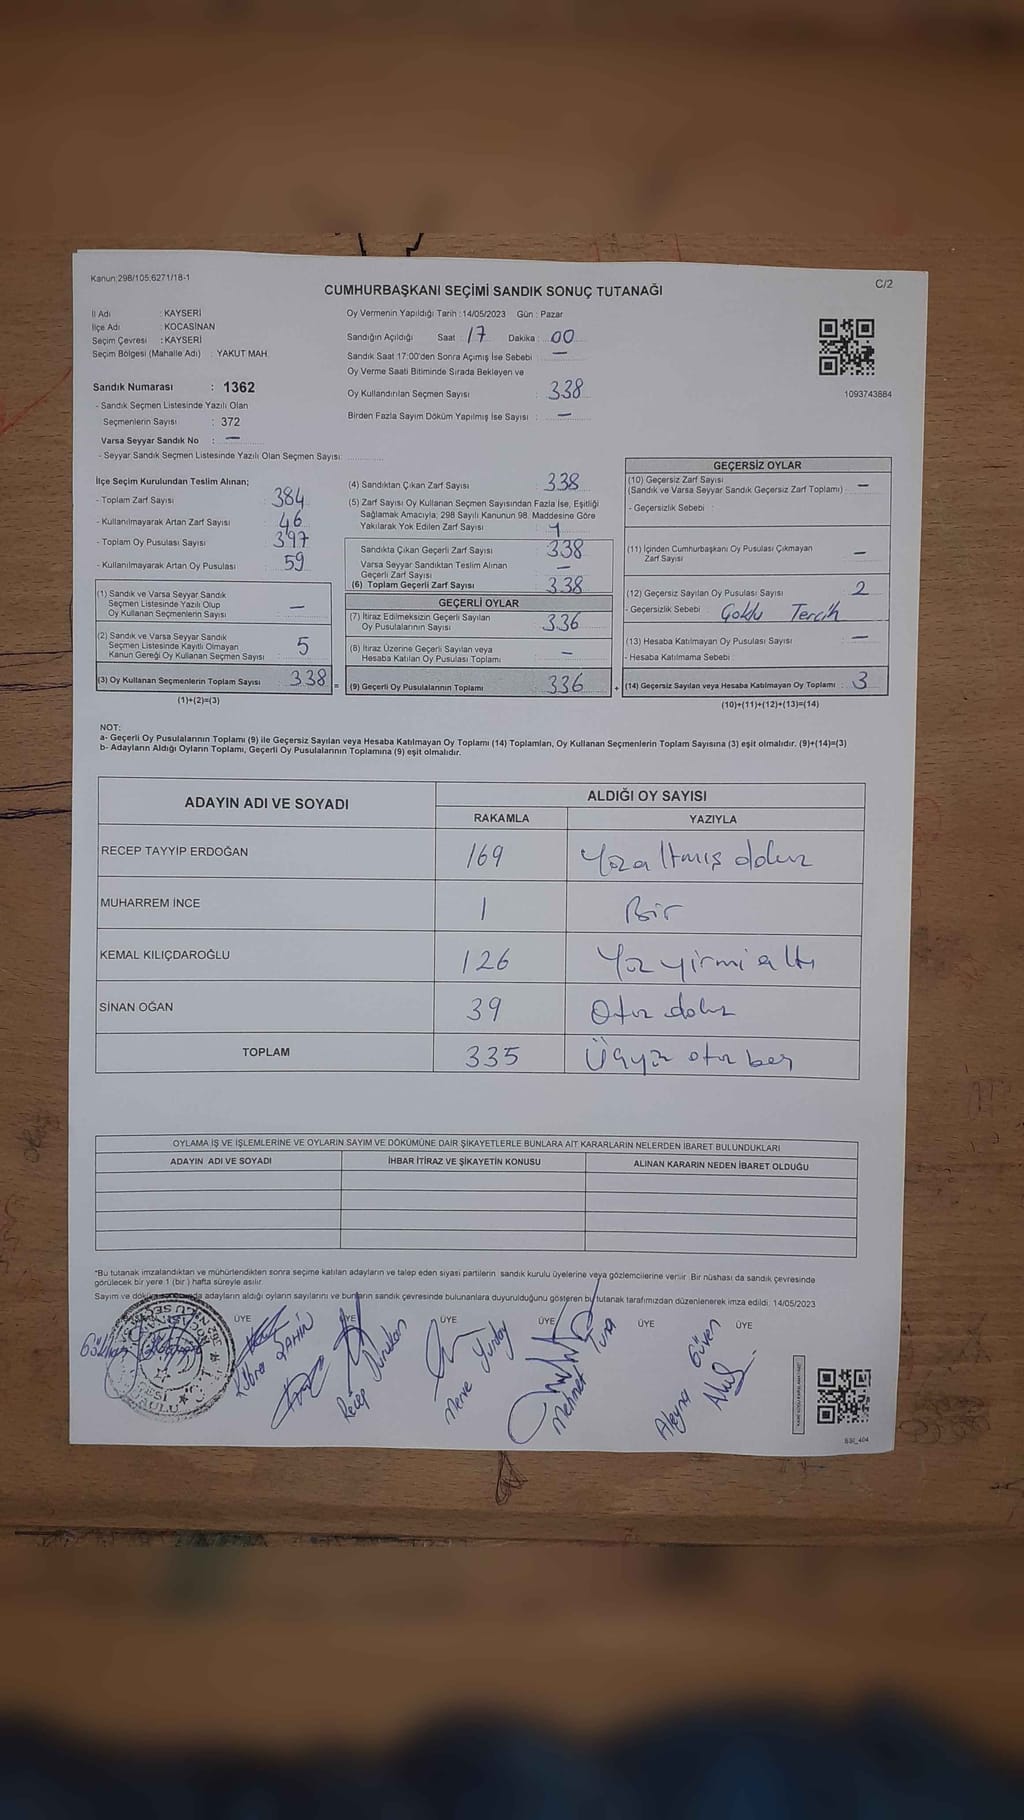 Kanun:298/105,6271/18-1
C/2
CUMHURBAŞKANI SEÇİMİ SANDIK SONUÇ TUTANAĞI
İl Adı : KAYSERİ
İlçe Adı : KOCASİNAN
Seçim Çevresi : KAYSERİ
Seçim Bölgesi (Mahalle Adı) : YAKUT MAH.
Sandık Numarası : 1362
- Sandık Seçmen Listesinde Yazılı Olan
Seçmenlerin Sayısı : 372
Varsa Seyyar Sandık No : —
- Seyyar Sandık Seçmen Listesinde Yazılı Olan Seçmen Sayısı:
Oy Vermenin Yapıldığı Tarih :14/05/2023 Gün : Pazar
Sandığın Açıldığı Saat : 17 Dakika : 00
Sandık Saat 17:00'den Sonra Açımış İse Sebebi : —
Oy Verme Saati Bitiminde Sırada Bekleyen ve
Oy Kullandırılan Seçmen Sayısı : 338
Birden Fazla Sayım Döküm Yapılmış İse Sayısı : —
1093743884
İlçe Seçim Kurulundan Teslim Alınan;
- Toplam Zarf Sayısı : 384
- Kullanılmayarak Artan Zarf Sayısı : 46
- Toplam Oy Pusulası Sayısı : 397
- Kullanılmayarak Artan Oy Pusulası : 59
(1) Sandık ve Varsa Seyyar Sandık
Seçmen Listesinde Yazılı Olup
Oy Kullanan Seçmenlerin Sayısı : —
(2) Sandık ve Varsa Seyyar Sandık
Seçmen Listesinde Kayıtlı Olmayan
Kanun Gereği Oy Kullanan Seçmen Sayısı : 5
(3) Oy Kullanan Seçmenlerin Toplam Sayısı : 338 =
(1)+(2)=(3)
(4) Sandıktan Çıkan Zarf Sayısı : 338
(5) Zarf Sayısı Oy Kullanan Seçmen Sayısından Fazla İse, Eşitliği
Sağlamak Amacıyla; 298 Sayılı Kanunun 98. Maddesine Göre
Yakılarak Yok Edilen Zarf Sayısı : 1
Sandıkta Çıkan Geçerli Zarf Sayısı : 338
Varsa Seyyar Sandıktan Teslim Alınan
Geçerli Zarf Sayısı : —
(6) Toplam Geçerli Zarf Sayısı : 338
GEÇERLİ OYLAR
(7) İtiraz Edilmeksizin Geçerli Sayılan
Oy Pusulalarının Sayısı : 336
(8) İtiraz Üzerine Geçerli Sayılan veya
Hesaba Katılan Oy Pusulası Toplamı : —
(9) Geçerli Oy Pusulalarının Toplamı : 336 +
GEÇERSİZ OYLAR
(10) Geçersiz Zarf Sayısı
(Sandık ve Varsa Seyyar Sandık Geçersiz Zarf Toplamı) : —
- Geçersizlik Sebebi :
(11) İçinden Cumhurbaşkanı Oy Pusulası Çıkmayan
Zarf Sayısı : —
(12) Geçersiz Sayılan Oy Pusulası Sayısı : 2
- Geçersizlik Sebebi : Çoklu Tercih
(13) Hesaba Katılmayan Oy Pusulası Sayısı : —
- Hesaba Katılmama Sebebi :
(14) Geçersiz Sayılan veya Hesaba Katılmayan Oy Toplamı : 3
(10)+(11)+(12)+(13)=(14)
NOT:
a- Geçerli Oy Pusulalarının Toplamı (9) ile Geçersiz Sayılan veya Hesaba Katılmayan Oy Toplamı (14) Toplamları, Oy Kullanan Seçmenlerin Toplam Sayısına (3) eşit olmalıdır. (9)+(14)=(3)
b- Adayların Aldığı Oyların Toplamı, Geçerli Oy Pusulalarının Toplamına (9) eşit olmalıdır.
ADAYIN ADI VE SOYADI
ALDIĞI OY SAYISI
RAKAMLA YAZIYLA
RECEP TAYYİP ERDOĞAN 169 Yüzaltmış dokuz
MUHARREM İNCE 1 Bir
KEMAL KILIÇDAROĞLU 126 Yüz yirmi altı
SİNAN OĞAN 39 Otuz dokuz
TOPLAM 335 Üçyüz otuz beş
OYLAMA İŞ VE İŞLEMLERİNE VE OYLARIN SAYIM VE DÖKÜMÜNE DAİR ŞİKAYETLERLE BUNLARA AİT KARARLARIN NELERDEN İBARET BULUNDUKLARI
ADAYIN ADI VE SOYADI İHBAR İTİRAZ VE ŞİKAYETİN KONUSU ALINAN KARARIN NEDEN İBARET OLDUĞU
*Bu tutanak imzalandıktan ve mühürlendikten sonra seçime katılan adayların ve talep eden siyasi partilerin sandık kurulu üyelerine veya gözlemcilerine verilir. Bir nüshası da sandık çevresinde
görülecek bir yere 1 (bir ) hafta süreyle asılır.
Sayım ve döküm sonunda adayların aldığı oyların sayılarını ve bunların sandık çevresinde bulunanlara duyurulduğunu gösteren bu tutanak tarafımızdan düzenlenerek imza edildi. 14/05/2023
ÜYE ÜYE ÜYE ÜYE ÜYE ÜYE
Gökhan
Kübra ŞAHİN
Recep
Merve Yurday
Mehmet Tuna
Aleyna Güven
SSI_404